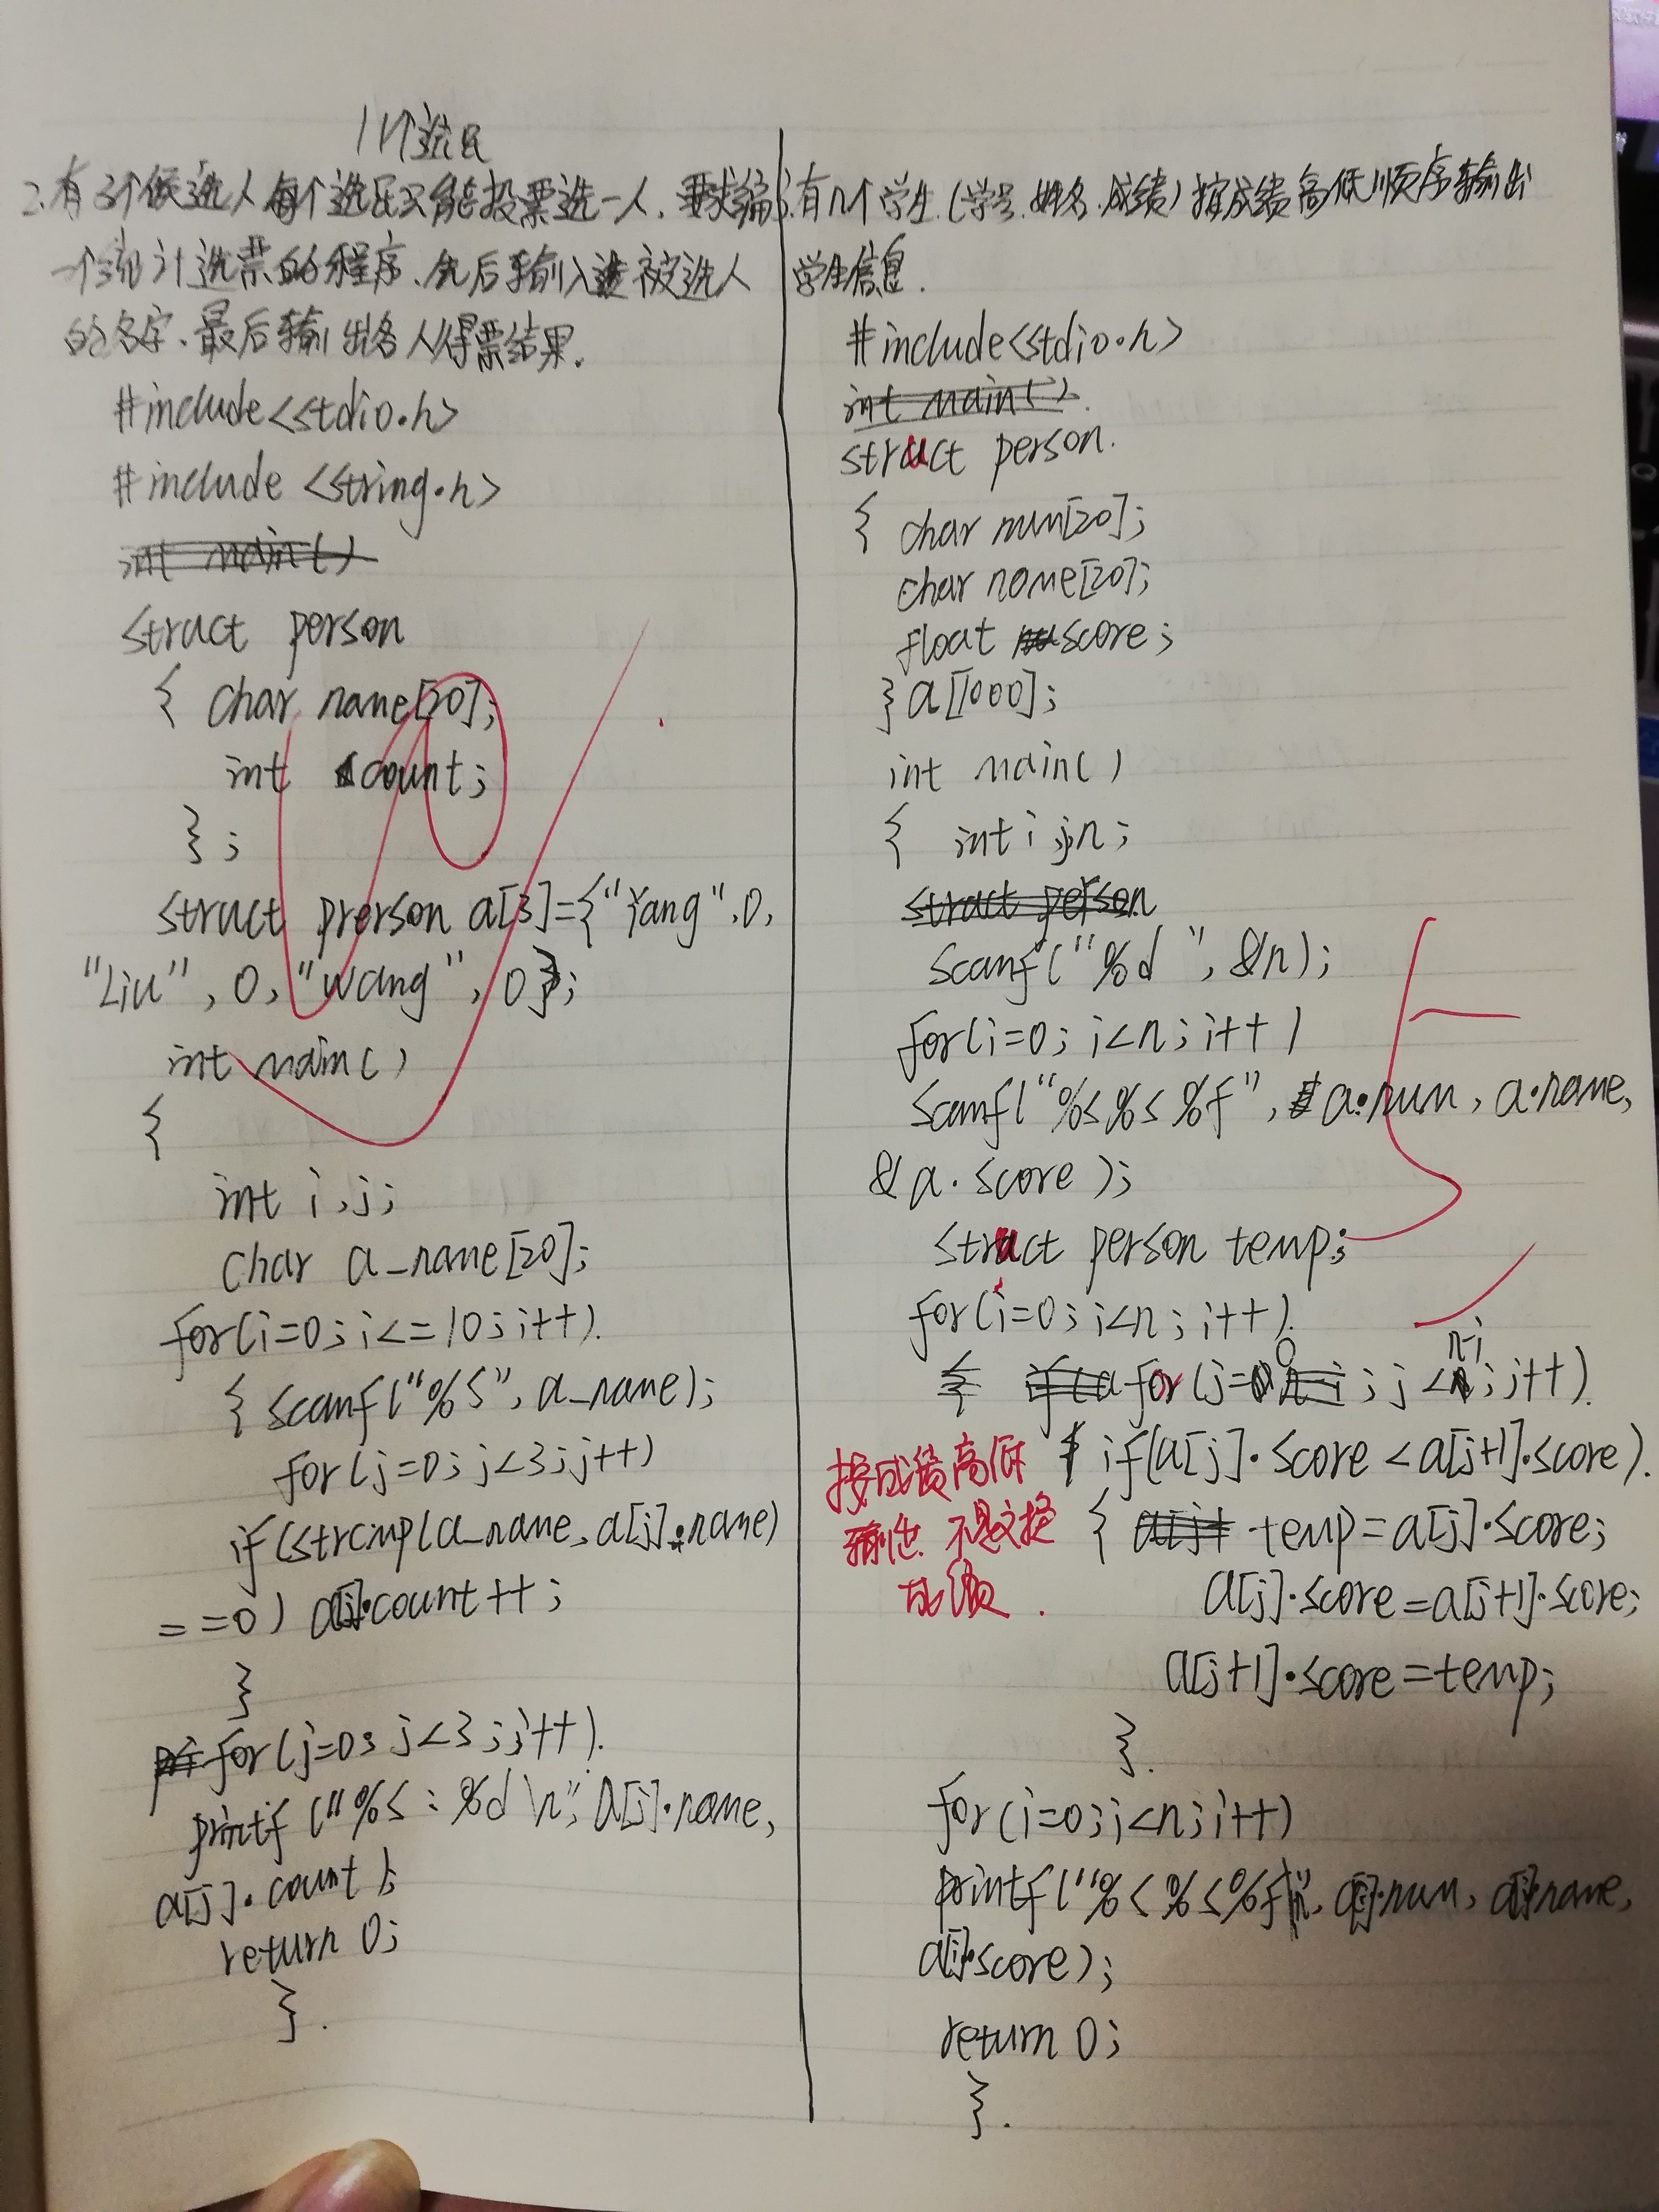 11个选民
2.有3个候选人每个选民只能投票选一人.要求编
一个统计选票的程序、先后输入被选人
的名字、最后输出各人得票结果.
#include<stdio.h>
#include <string.h>
int main()
struct person
{ char name[20];
int count;
};
struct prerson a[3]={"Yang",0,
"Liu", 0, "wang", 0};
int main()
{
int i,j;
char a_name[20];
for(i=0;i<=10;i++).
{ scanf("%s", a_name);
for(j=0;j<3;j++)
if(strcmp(a_name,a[j].name)
==0) a[j].count++;
}
for(j=0;j<3;j++).
printf("%s:%d\n",a[j].name,
a[j].count);
return 0;
}.
3.有n个学生.(学号.姓名.成绩)按成绩高低顺序输出
学生信息.
#include<stdio.h>
int main().
struct person.
{ char num[20];
char name[20];
float score;
}a[1000];
int main()
{ int i,j,n;
struct person
scanf("%d ",&n);
for(i=0;i<n;i++)
scanf("%s%s%f",a.num,a.name,
&a.score);
struct person temp;
for(i=0;i<n;i++).
n-i
0
for(j=;j<;j++).
if(a[j].score<a[j+1].score).
{ temp=a[j].score;
a[j].score=a[j+1].score;
a[j+1].score=temp;
}.
按成绩高低
输出.不是交换
成绩.
for(i=0;i<n;i++)
printf("%s%s%f\n",a[i].num,a[i].name,
a[i].score);
return 0;
}.